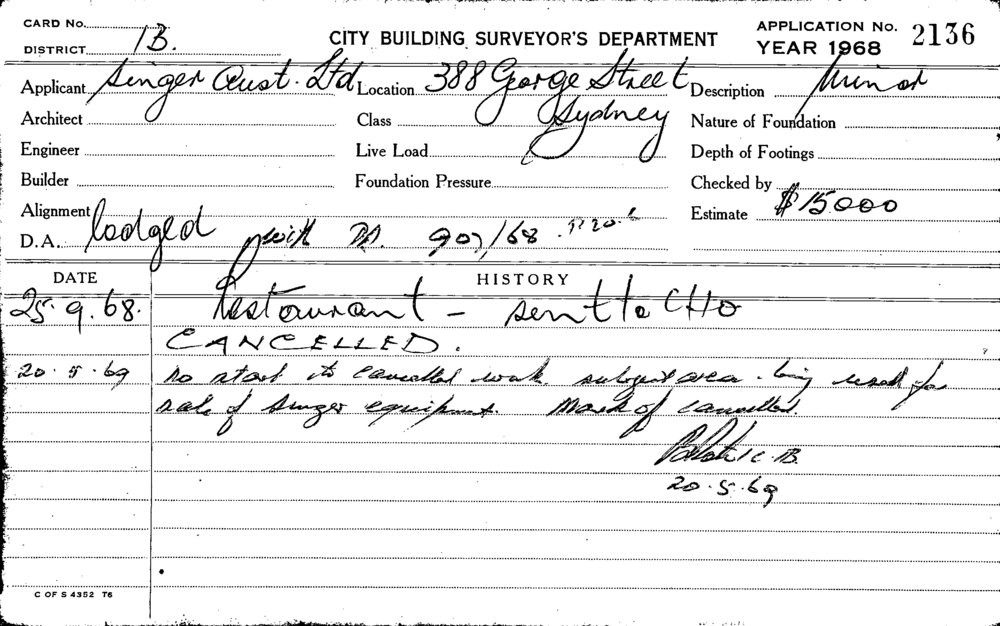 CARD No.
DISTRICT 1B.
CITY BUILDING SURVEYOR'S DEPARTMENT
APPLICATION No. 2136
YEAR 1968
Applicant Singer Aust. Ltd Location 388 George Street Description Minor
Architect Class Sydney Nature of Foundation
Engineer Live Load Depth of Footings
Builder Foundation Pressure Checked by
Alignment Estimate $15000
D.A. lodged with DA. 907/68
DATE HISTORY
25.9.68. Restaurant - sent to CHO
CANCELLED.
20.5.69 No start to cancelled work subject area being used for
sale of Singer equipment. Mark off cancelled.
20.5.69
C OF S 4352 T6